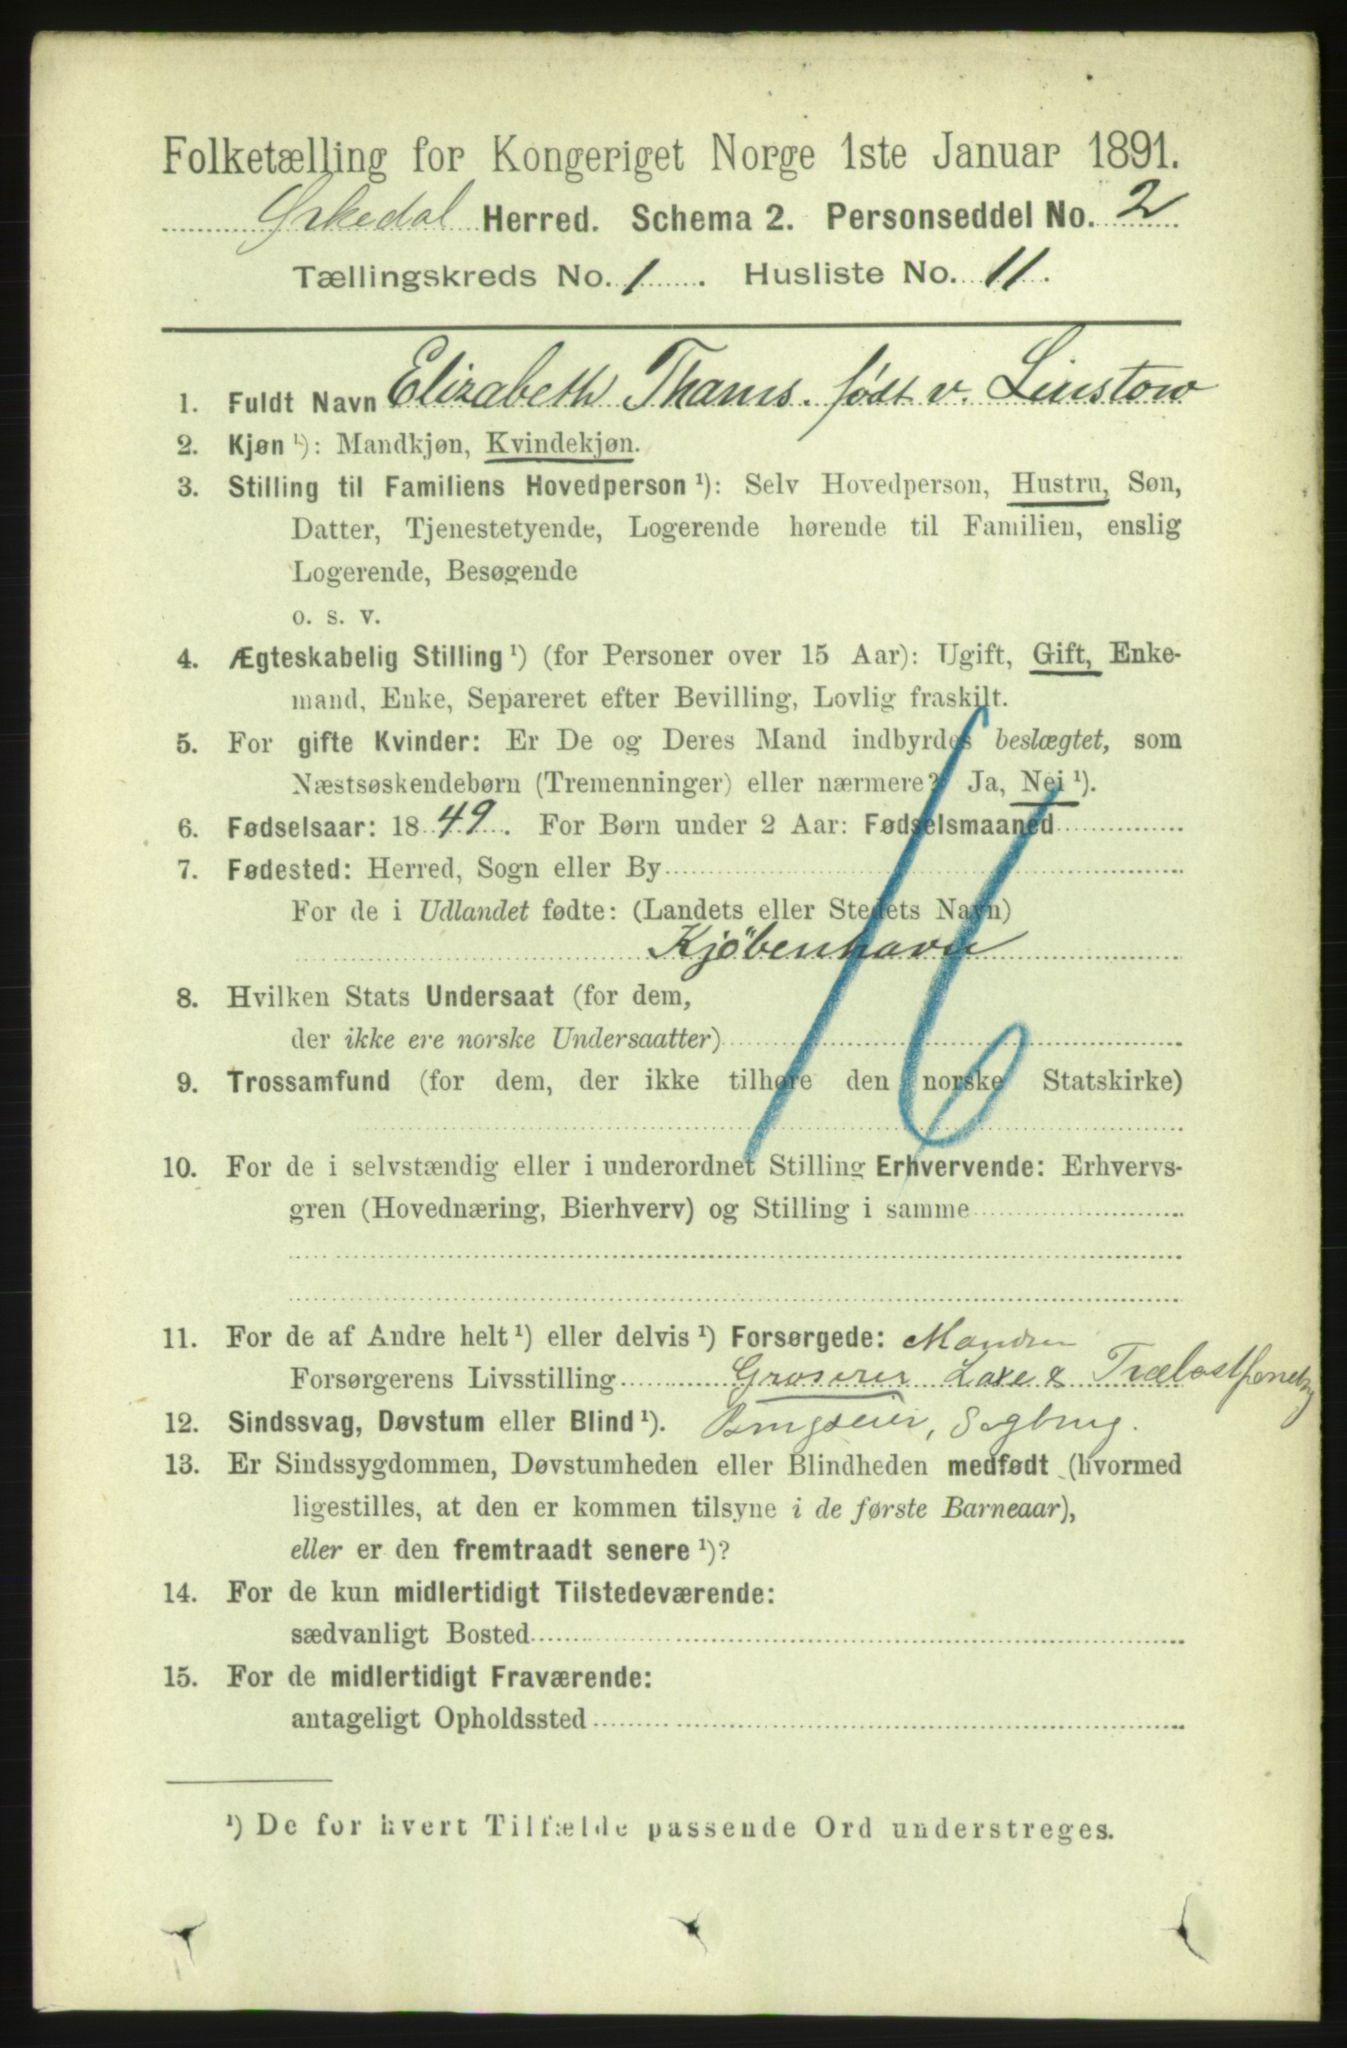 Folketælling for Kongeriget Norge 1ste Januar 1891.
Ørkedal Herred. Schema 2. Personseddel No. 2
Tællingskreds No. 1. Husliste No. 11.
1. Fuldt Navn Elizabeth Thams. født v. Linstow
2. Kjøn ¹): Mandkjøn, Kvindekjøn.
3. Stilling til Familiens Hovedperson ¹): Selv Hovedperson, Hustru, Søn,
Datter, Tjenestetyende, Logerende hørende til Familien, enslig
Logerende, Besøgende
o. s. v.
4. Ægteskabelig Stilling ¹) (for Personer over 15 Aar): Ugift, Gift, Enke-
mand, Enke, Separeret efter Bevilling, Lovlig fraskilt.
5. For gifte Kvinder: Er De og Deres Mand indbyrdes beslægtet, som
Næstsøskendebørn (Tremenninger) eller nærmere? Ja, Nei ¹).
6. Fødselsaar: 1849. For Børn under 2 Aar: Fødselsmaaned
7. Fødested: Herred, Sogn eller By
For de i Udlandet fødte: (Landets eller Stedets Navn)
Kjöbenhavn
8. Hvilken Stats Undersaat (for dem,
der ikke ere norske Undersaatter)
16
9. Trossamfund (for dem, der ikke tilhøre den norske Statskirke)
10. For de i selvstændig eller i underordnet Stilling Erhvervende: Erhvervs-
gren (Hovednæring, Bierhverv) og Stilling i samme
11. For de af Andre helt ¹) eller delvis ¹) Forsørgede: Manden
Forsørgerens Livsstilling Groserer Laxe & Trælastforretng
12. Sindssvag, Døvstum eller Blind ¹). Brugseier, Sagbrug.
13. Er Sindssygdommen, Døvstumheden eller Blindheden medfødt (hvormed
ligestilles, at den er kommen tilsyne i de første Barneaar),
eller er den fremtraadt senere ¹)?
14. For de kun midlertidigt Tilstedeværende:
sædvanligt Bosted
15. For de midlertidigt Fraværende:
antageligt Opholdssted
¹) De for hvert Tilfælde passende Ord understreges.